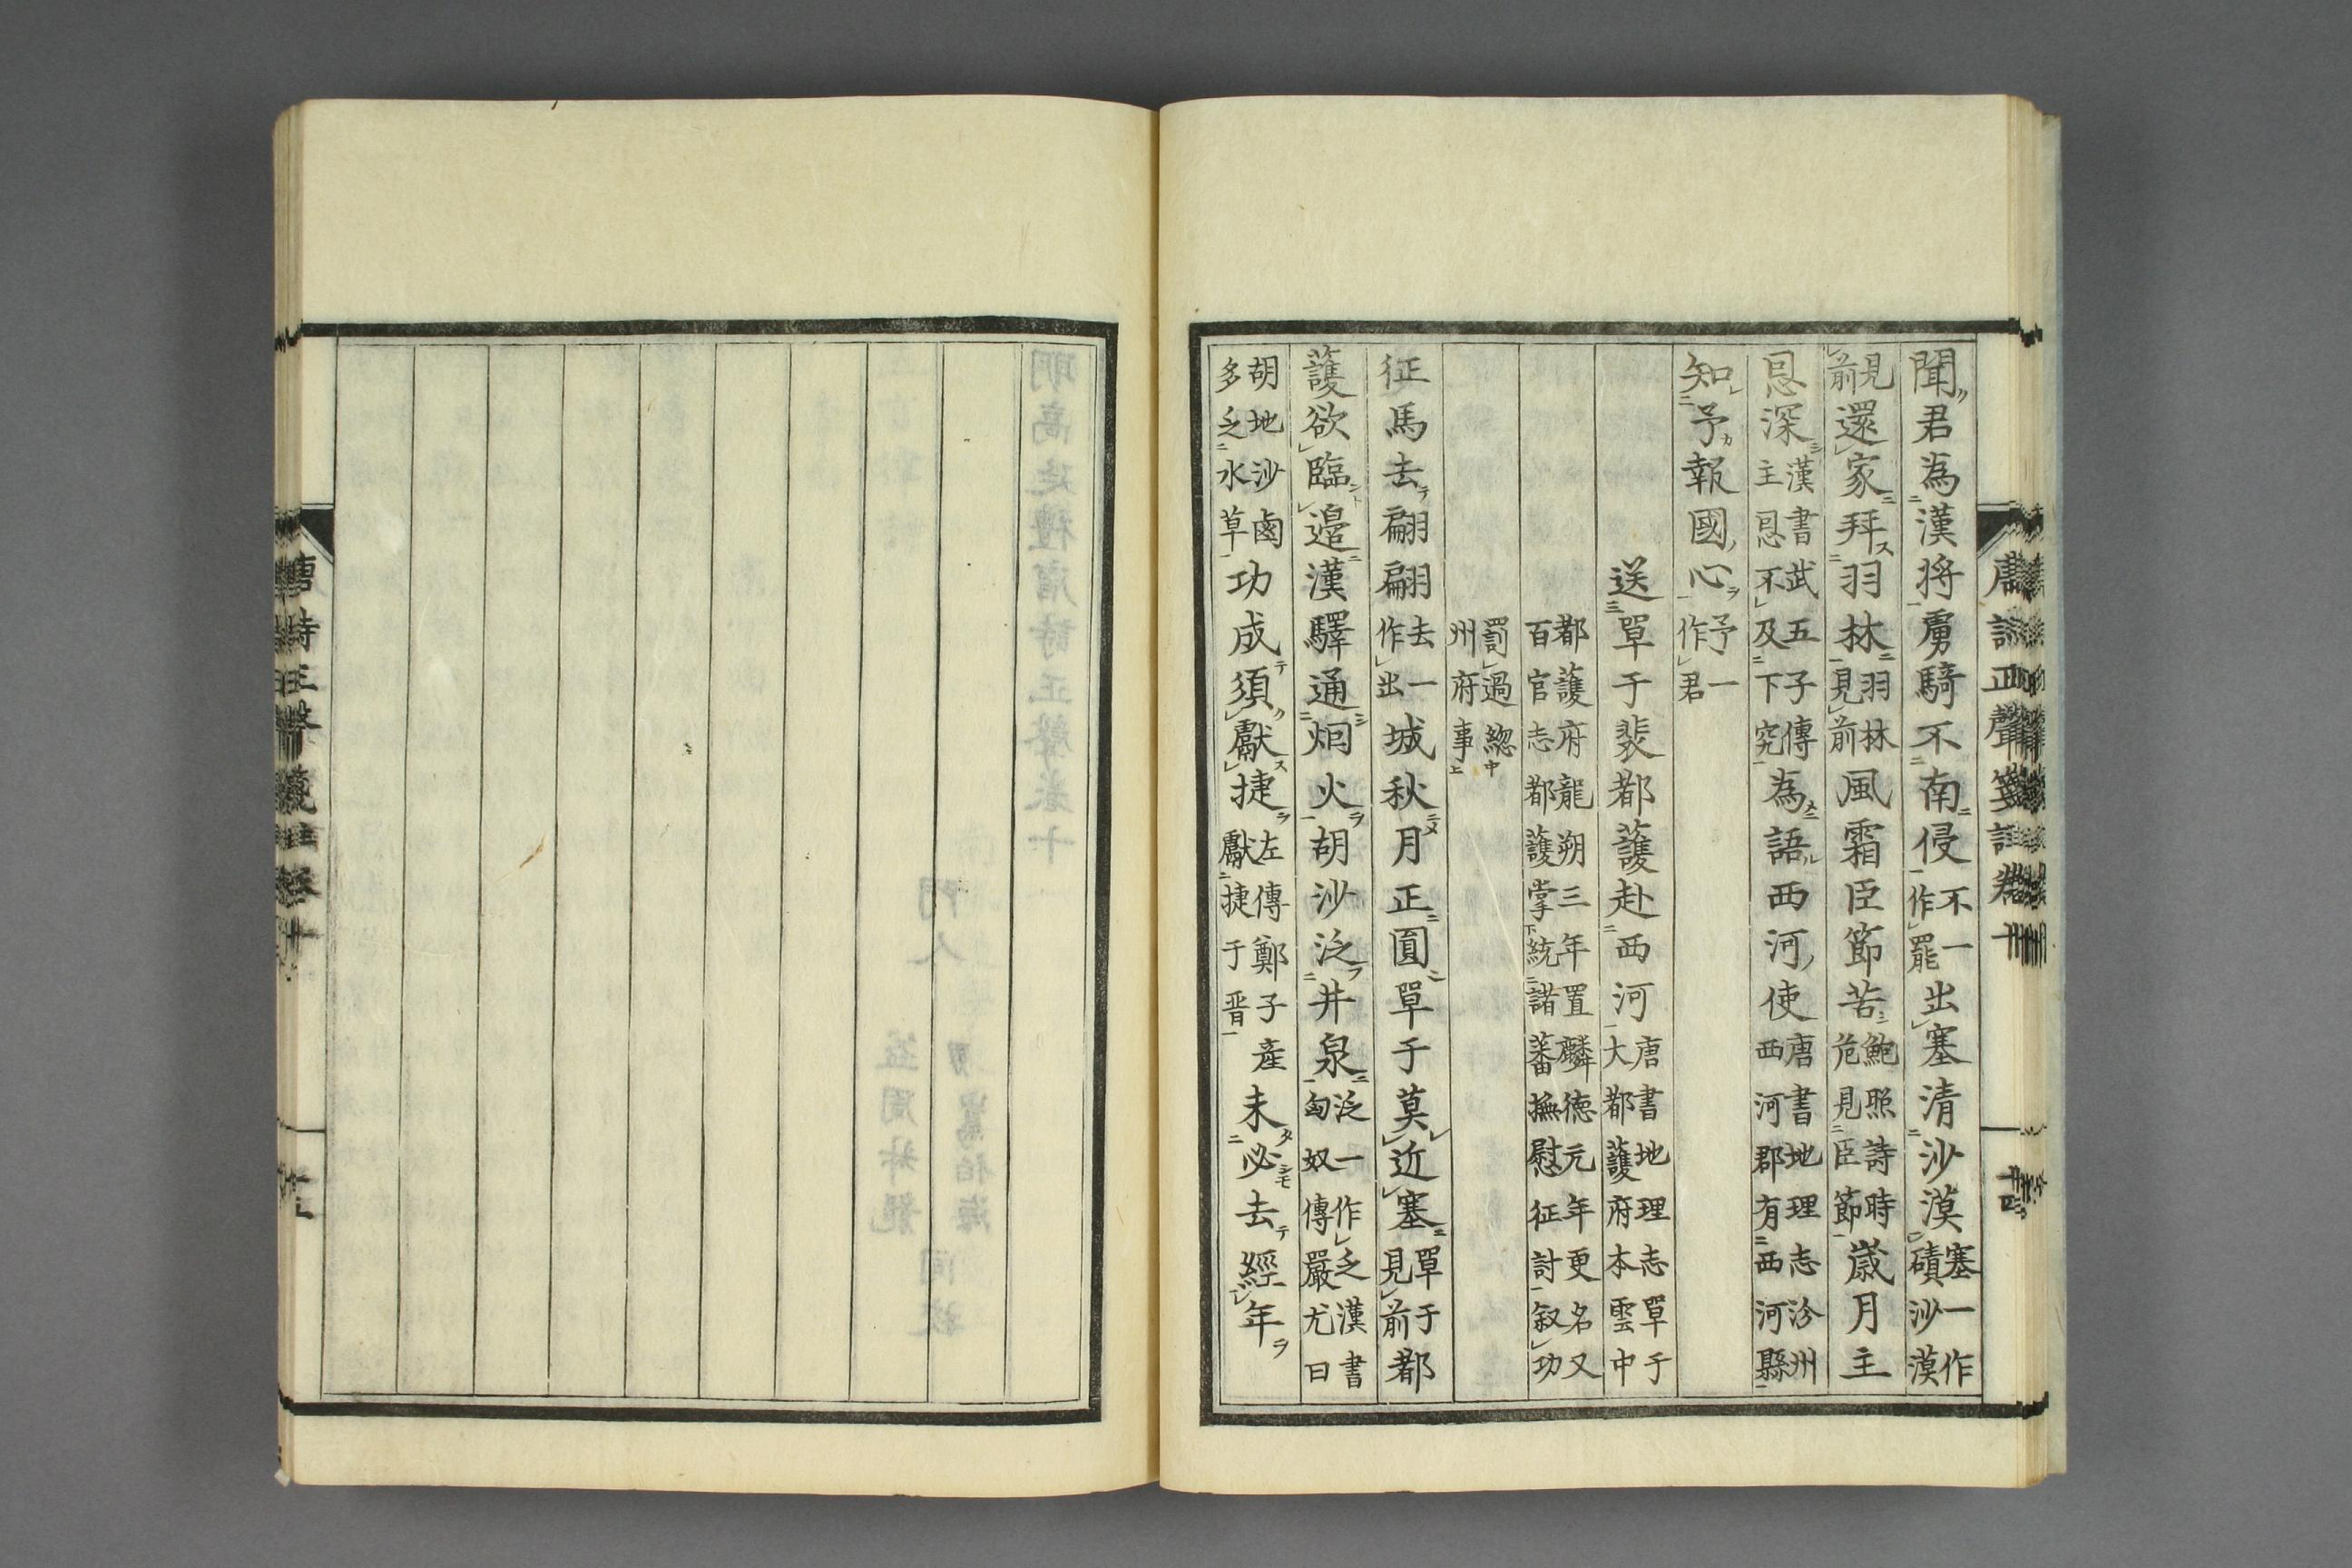 聞君為漢將虜騎不南侵不一作罷出塞清沙漠塞一作磧沙漠
見前還家拜羽林羽林見前風霜臣節苦鮑照詩時危見臣節歲月主
恩深漢書武五子傳主恩不及下究為語西河使唐書地理志汾州西河郡有西河縣
知予報國心予一作君
送單于裴都護赴西河唐書地理志單于大都護府本雲中
都護府龍朔三年置麟德元年更名又百官志都護掌統諸蕃撫慰征討叙功
罰過總州府事
征馬去翩翩去一作出城秋月正圓單于莫近塞單于見前都
護欲臨邉漢驛通烟火胡沙泛井泉泛一作乏漢書匈奴傳嚴尤曰
胡地沙鹵多乏水草功成須獻捷左傳鄭子產獻捷于晋未必去經年
唐詩正聲箋註卷十